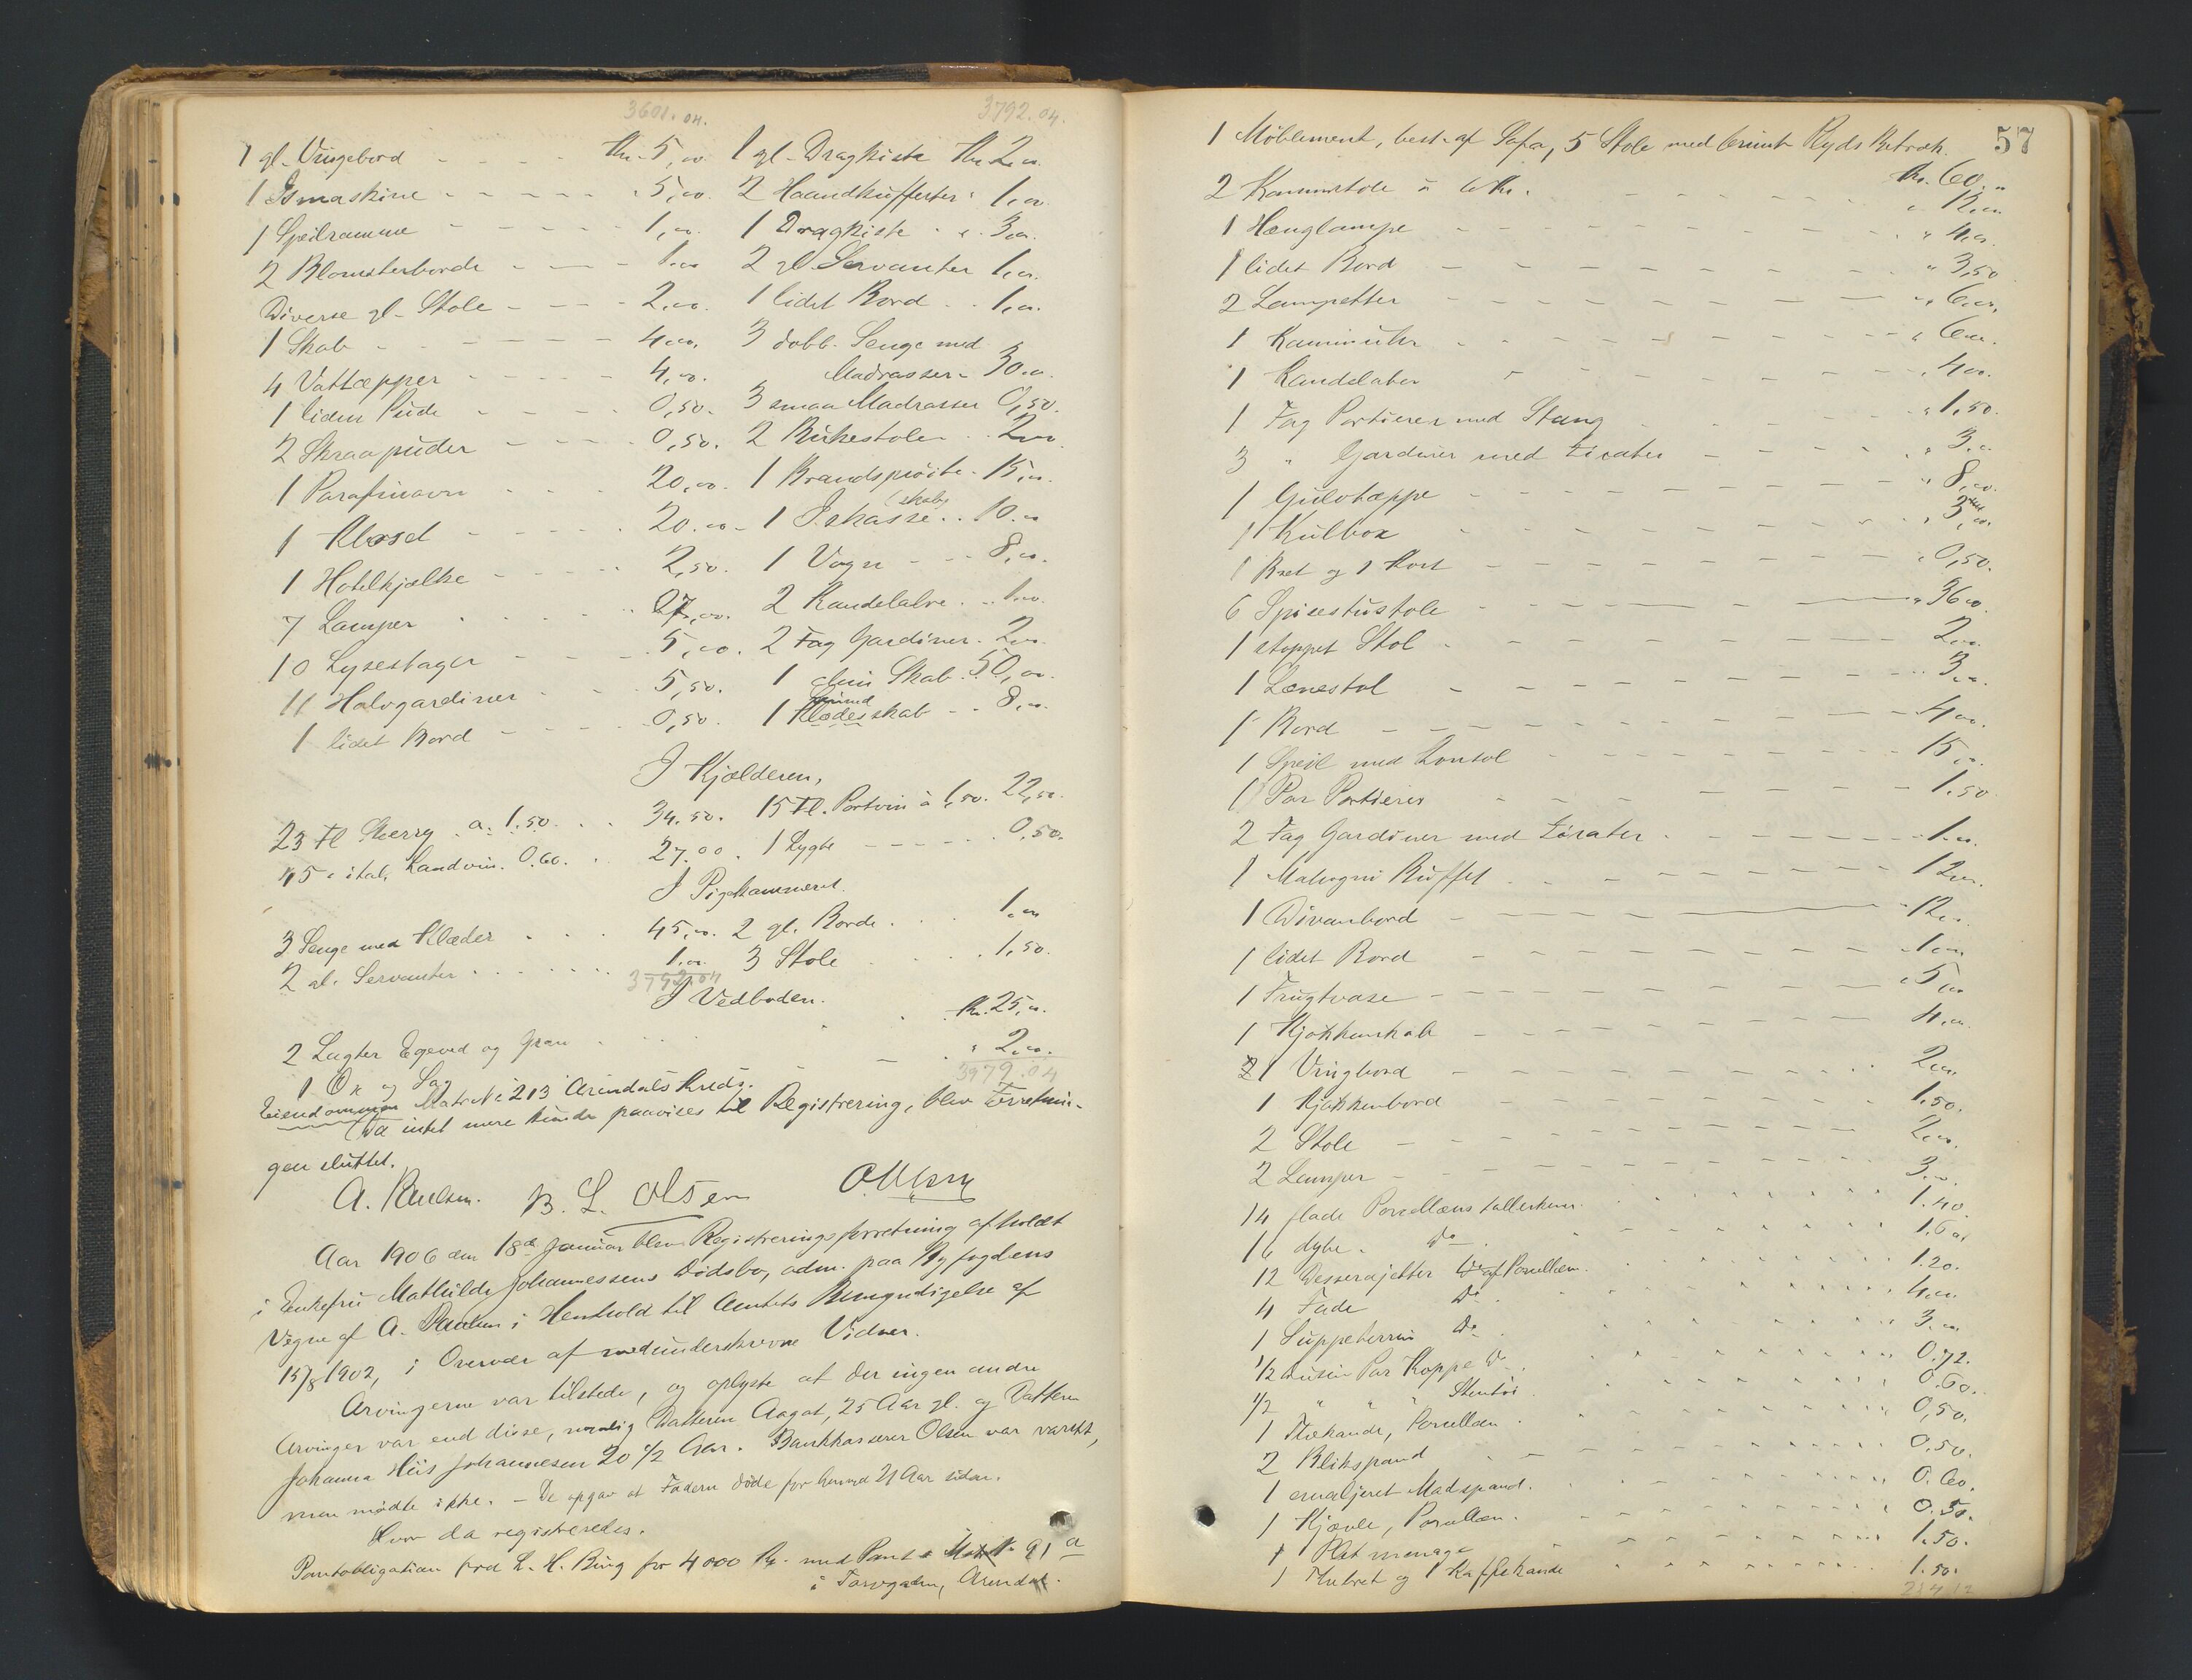 3601.04. 3792.04.
1 gl. Vringebord - - - - Kr. 5,00. 1 gl. Dragkiste Kr. 2,00.
1 Ismaskine - - - - - " 5,00. 2 Haandkufferter " 1,00.
1 Speilramme - - - - - 1,00. 1 Dragkiste - " 3,00.
2 Blomsterborde - - - - 1.00 2 gl. Servanter 1,00.
Diverse gl. Stole - - - - 2,00. 1 lidet Bord . . 1,00.
1 Skab - - - - - - 4,00. 3 dobb. Senge med
4 Vattæpper - - - - - 4,00. Madrasser - 30.00.
1 liden Pude - - - - 0,50. 3 smaa Madrasser 0,50.
2 Skraapuder - - - - 0,50. 2 Birkestole . . 2,00.
1 Parafinovn . . . . 20,00. 1 Brandsprøite - 15,00.
1 Klosed - - - - - 20.00 - 1 Iskasse (skab) . . 10.00
1 Hotelkjælke - - - - - 2,50. 1 Vogn - - - 8,00.
7 Lamper . . . . . 27,00. 2 Kandelabre . . 1.00.
10 Lysestager - - - - 5,00. 2 Fag Gardiner . 2,00.
11 Halvgardiner - - - 5,50. 1 Skab . 50,00.
1 lidet Bord - - - - 0,50. 1 Klædesskab - . 8,00.
I Kjælderen,
23 Fl Sherry . a. 1.50. . . 34.50. 15 Fl. Portvin à 1,50. 22,50.
45 " ital. Landvin. 0.60. . . 27.00. 1 Lygte - - - - - 0,50.
I Pigekammeret.
3 Senge med Klæder . . . 45,00. 2 gl. Borde . . . 1.00
2 gl. Servanter . . . . . . . 1.00. 3 Stole . . . . . 1,50.
3792.04
I Vedboden.
2 Lagter Egeved og Gran . . . . . Kr. 25,00.
1 Øx og Sag - - . " 2,00.
3979.04
Eiendommen Matr. No 213 Arendals Kreds.
Da intet mere kunde paavises til Registrering, blev Forretnin-
gen sluttet.
A. Paulsen. B. L. Olsen
Aar 1906 den 18de Januar blev Registreringsforretning afholdt
i Enkefru Mathilde Johannessens Dødsbo, adm. paa Byfogdens
Vegne af A. Paulsen i Henhold til Amtets Bemyndigelse af
15/8 1902, i Overvær af medunderskrevne Vidner.
Arvingerne var tilstede, og oplyste at der ingen andre
Arvinger var end disse, nemlig Datteren Aagot, 25 Aar gl. og Datteren
Johanna Hiis Johannesen 20 1/2 Aar. Bankkasserer Olsen var varslet,
men mødte ikke. - De opgav at Faderen døde for henved 21 Aar siden.
Hvor da registreredes.
Pantobligation fra L. H. Bing for 4000 Kr. med Pant i Matr. No. 91 a
i Torvgaden, Arendal.
57
1 Møblement, best. af Sofa, 5 Stole med brunt Plyds Betræk.
Kr. 60. "
2 Kaminstole à 6 Kr. - - - - - - " 12,00
1 Hænglampe - - - - - - - " 4,00.
1 lidet Bord - - - - - - - " 3,50
2 Lampetter - - - - - - - " 6,00.
1 Kaminuhr - - - - - - - " 6,00.
1 Kandelaber - - - - - - - " 4,00.
1 Fag Portierer med Stang - - - - " 1,50.
3 " Gardiner med Lisater - - - - " 3.00
1 Gulvtæppe - - - - - - - " 8,00.
1 Kulbox - - - - - - - " 3,00.
1 Bret og 1 Kost - - - - - - - " 0,50.
6 Spisestustole - - - - - - " 36.00.
1 stoppet Stol - - - - - - - 2,00.
1 Lænestol - - - - - - - 3,00.
1 Bord - - - - - - - 4,00.
1 Speil med Konsol - - - - - - - 15,00.
1 Par Portierer - - - - - - - 1.50
2 Fag Gardiner med Lisater - - - - - - 1.00.
1 Mahogni Buffet . . - - - - - 12,00.
1 Divanbord - - - - - 12,00.
1 lidet Bord - - - - - - - 1,00
1 Frugtvase - - - - - - - 5,00
1 Kjøkkenskab - - - - - - - 4,00.
1 Vringbord - - - - - - - 2,00.
1 Kjøkkenbord - - - - - - - 1,50.
2 Stole - - - - - - - 2,00.
2 Lamper - - - - - - - 3,00.
14 flade Porcellæns tallerkener . . . . . 1.40.
16 dybe . Do . . . . . . 1.60.
12 Dessertasjetter af Porcellæn . . . . . 1.20.
4 Fade Do . . . . . . 4,00.
1 Suppeterrin Do . . . . . . 3.00.
1/2 dusin Par Koppe Do . . . . . . 0.72.
1/2 " " " Stentøi . . . . . . 0.60.
1 Thekande, Porcellæn . . . . . . 0,50.
2 Blikspand . . . . . . 0.50.
1 emaljeret Madspand . . . . . . 0.60.
1 Kjævle, Porcellæn . . . . . . 0.50.
1 Plat menage . . . . . . 1.50.
1 Thebret og 1 Kaffekande . . . . . . 1.50.